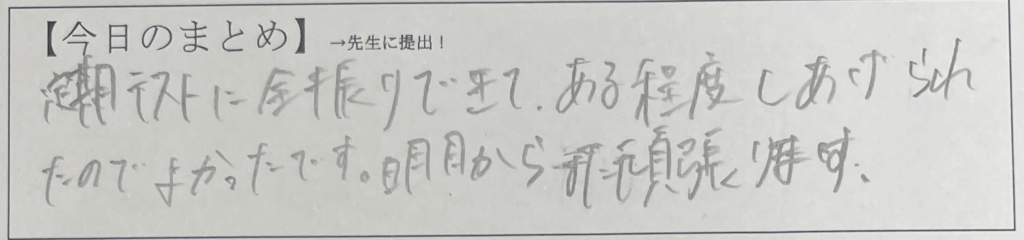 【今日のまとめ】 →先生に提出！
定期テストに全振りできて、ある程度しあげられ
たのでよかったです。明日から頑張ります。